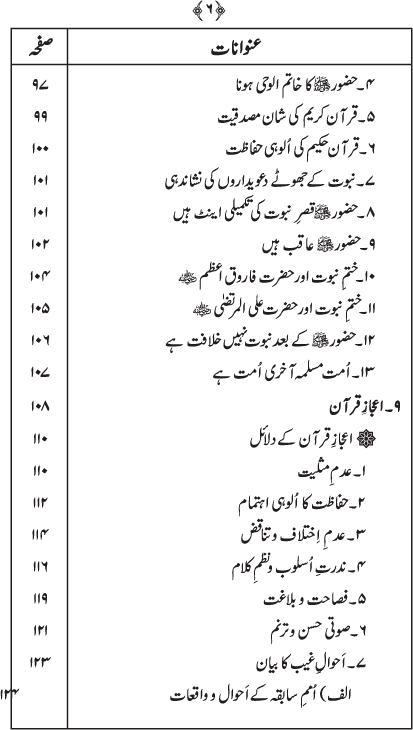 ﴿۶﴾
عنوانات صفحہ
۴۔ حضور ﷺ کا خاتم الوحی ہونا ۹۷
۵۔ قرآن کریم کی شان مصدقیت ۹۹
۶۔ قرآن حکیم کی اُلوہی حفاظت ۱۰۰
۷۔ نبوت کے جھوٹے دعویداروں کی نشاندہی ۱۰۱
۸۔ حضور ﷺ قصرِ نبوت کی تکمیلی اینٹ ہیں ۱۰۱
۹۔ حضور ﷺ عاقب ہیں ۱۰۲
۱۰۔ ختمِ نبوت اور حضرت فاروق اعظم ؓ ۱۰۴
۱۱۔ ختمِ نبوت اور حضرت علی المرتضیٰ ؓ ۱۰۵
۱۲۔ حضور ﷺ کے بعد نبوت نہیں خلافت ہے ۱۰۶
۱۳۔ اُمت مسلمہ آخری اُمت ہے ۱۰۷
۹۔ اعجازِ قرآن ۱۰۸
اعجازِ قرآن کے دلائل ۱۱۰
۱۔ عدمِ مثلیت ۱۱۰
۲۔ حفاظت کا اُلوہی اہتمام ۱۱۲
۳۔ عدمِ اِختلاف و تناقض ۱۱۴
۴۔ ندرتِ اُسلوب و نظمِ کلام ۱۱۶
۵۔ فصاحت و بلاغت ۱۱۹
۶۔ صوتی حسن و ترنم ۱۲۱
۷۔ اَحوالِ غیب کا بیان ۱۲۳
الف) اُممِ سابقہ کے اَحوال و واقعات ۱۲۴